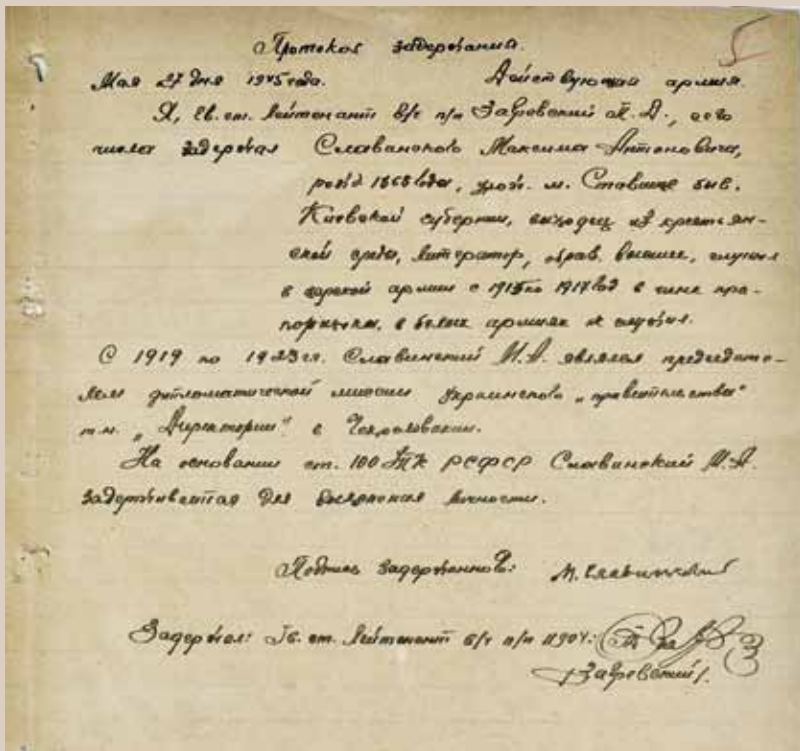 5
Протокол задержания.
Мая 27 дня 1945 года. Действующая армия.
Я, Гв. ст. лейтенант в/ч п/п Загревский П. Д., сего
числа задержал Славинского Максима Антоновича,
рожд 1868 года, урож. м. Ставище быв.
Киевской губернии, выходец из крестьян-
ской среды, литератор, образ. высшее, служил
в царской армии с 1915 по 1917 год в чине пра-
порщика, в белых армиях не служил.
С 1919 по 1923 г.г. Славинский М.А. являлся председате-
лем дипломатической миссии украинского „правительства"
т.н. „Директории" в Чехословакии.
На основании ст. 100 УПК РСФСР Славинский М.А.
задерживается для выяснения личности.
Подпись задержанного: М. Славинский
Задержал: Гв. ст. лейтенант в/ч п/п
/Загревский/.